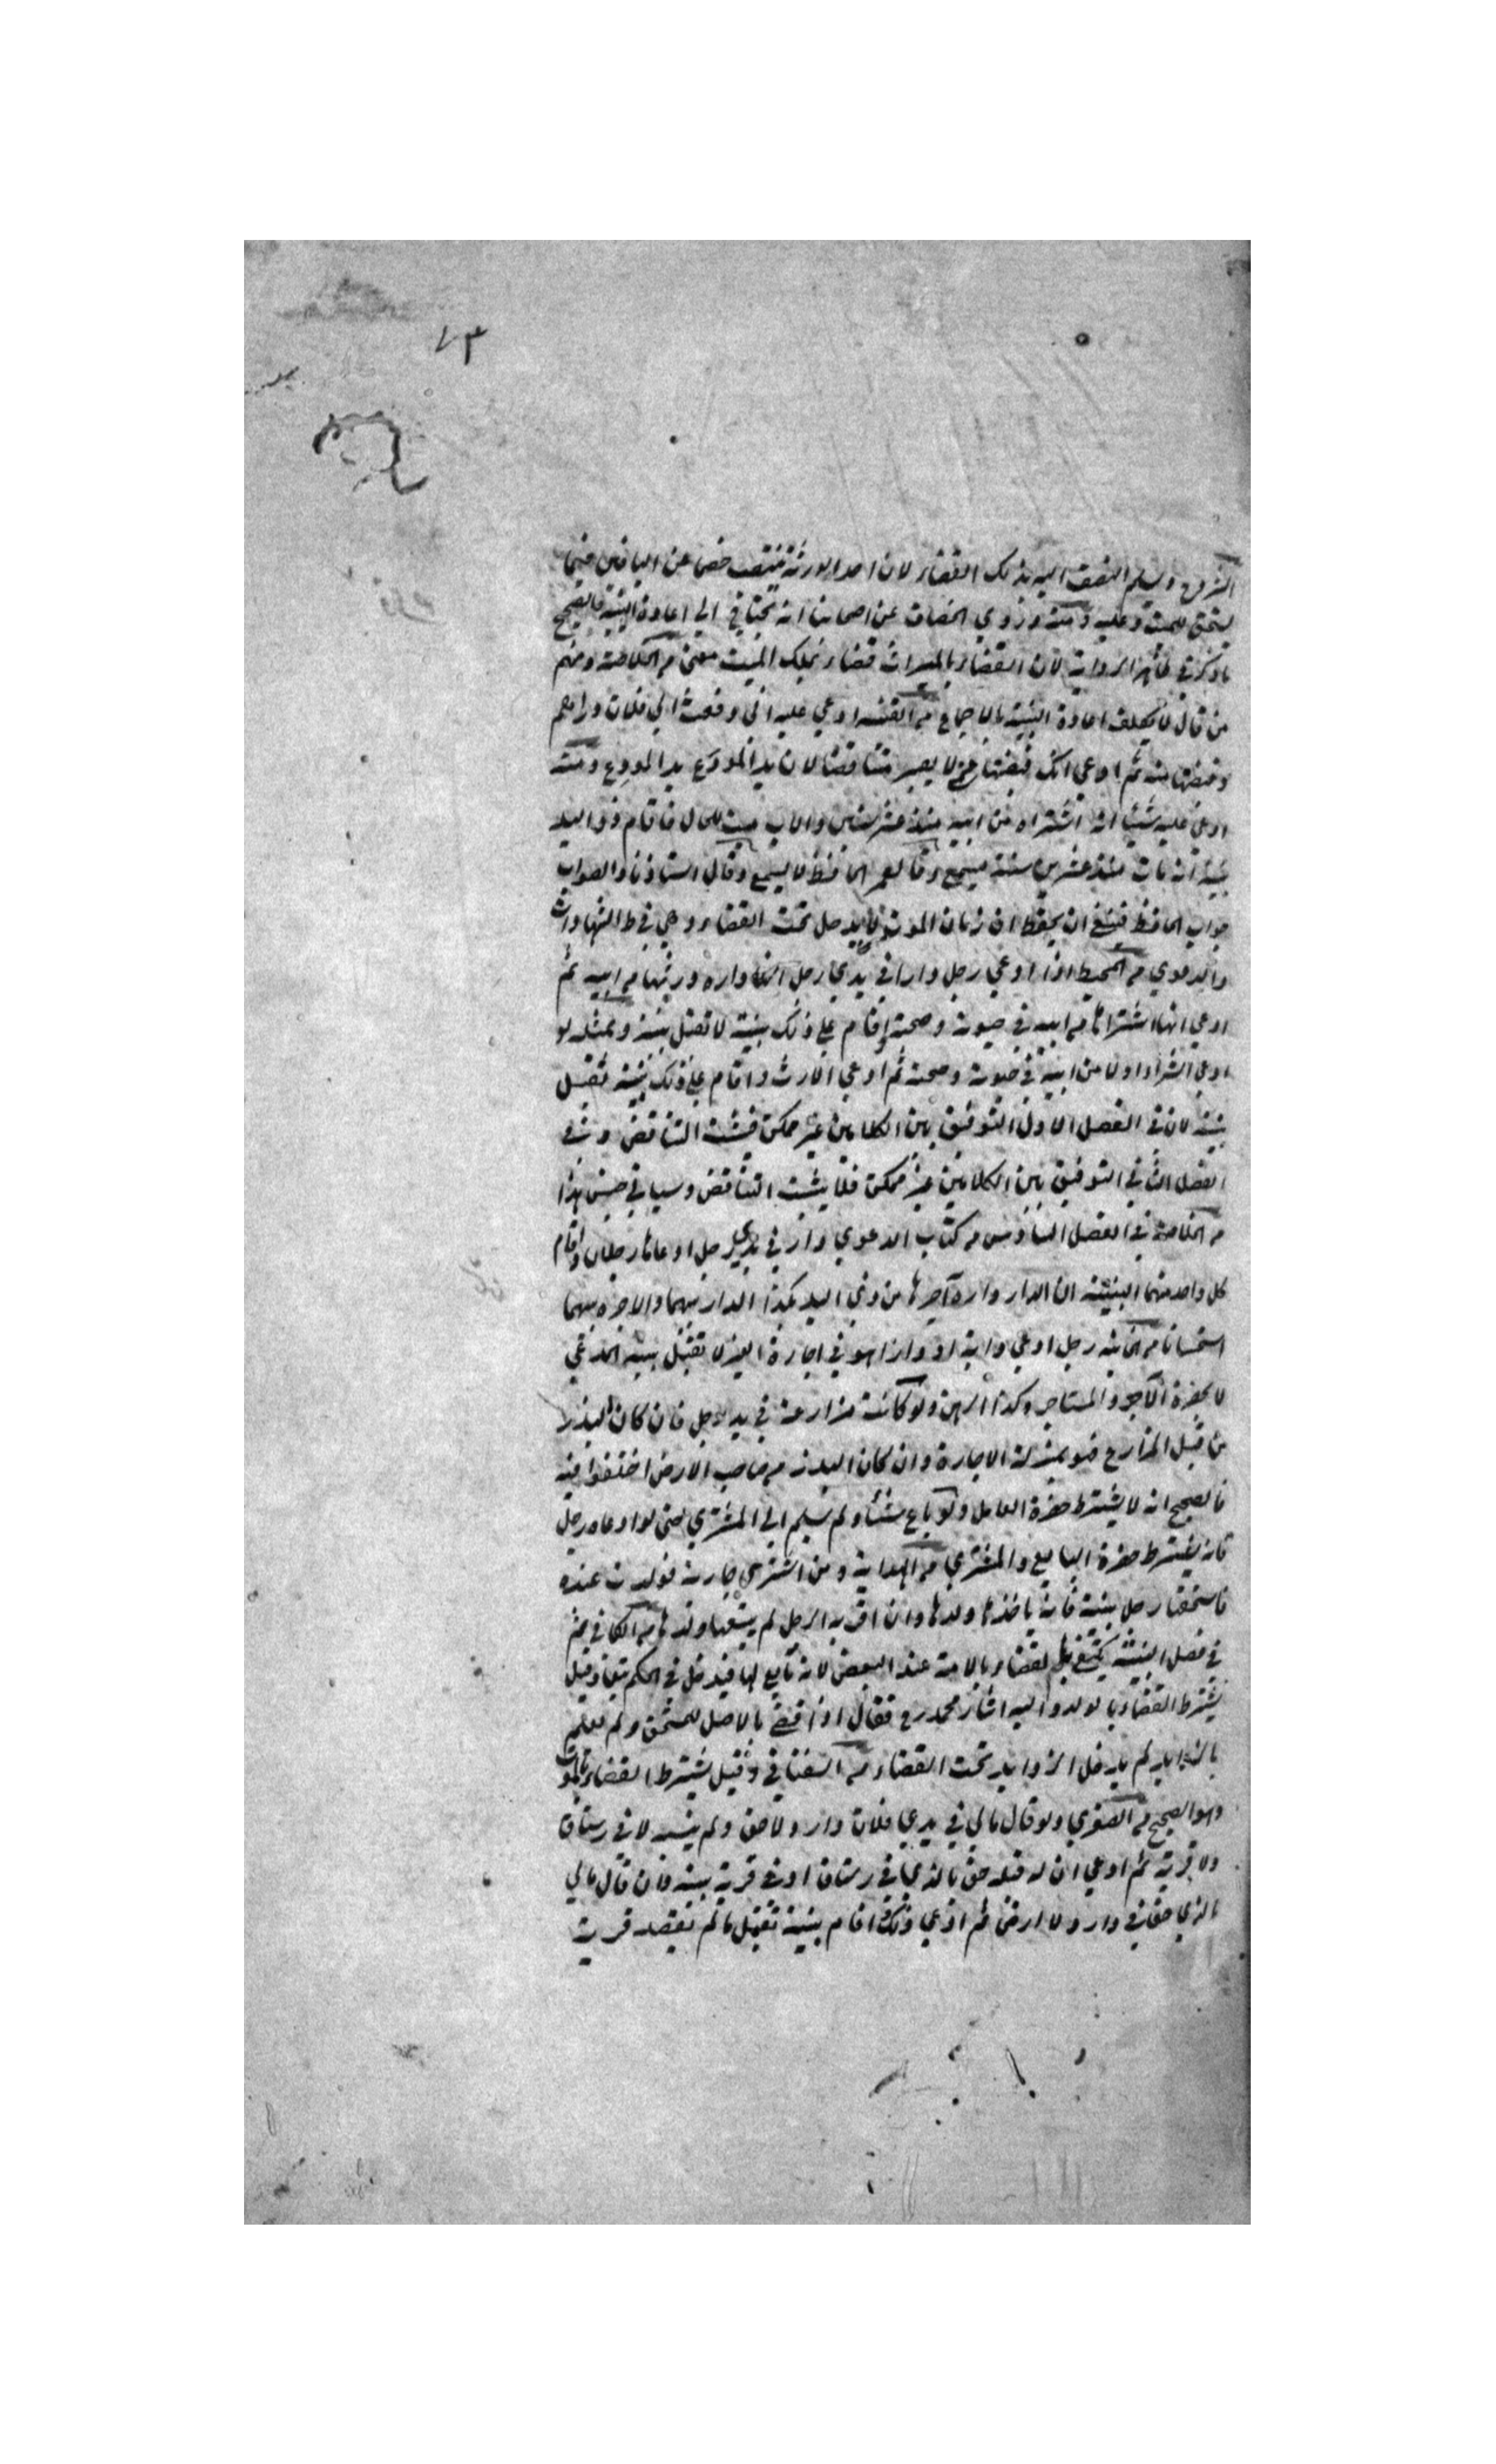 ٧٣
الزوج ويسلم النصف اليه بذلك القضاء لان احد الورثة ينتصب خصما عن الباقين فيما
يستحق للميت وعليه ومنه وروي الخصاف عن اصحابنا انه يحتاج الي اعادة البينة والصحيح
ما ذكر في ظاهر الرواية لان القضاء بالميراث قضاء بملك الميت معنى من الخلاصة ومنهم
من قال لا يكلف اعادة البينة بالاجماع من القنية ادعي عليه اني دفعت الي فلان دراهم
وقبضتها منه ثم ادعي انك قبضتها مني لا يصير متناقضا لان يد المودَع يد المودِع ومنه
ادعي عليه شيئا انه اشتراه من ابيه منذ عشر سنين والاب ميت للحال فاقام ذو اليد
بينة انه مات منذ عشرين سنة يسمع وقال عمر الحافظ لا يسمع وقال استاذنا والصواب
جواب الحافظ فينبغي ان يحفظ ان زمان الموت لا يدخل تحت القضاء وهي في ط الشهادات
والدعوي من المحيط اذا ادعي رجل دارا في يدي رجل انها داره ورثها من ابيه ثم
ادعي انها اشتراها من ابيه في حيوته وصحته واقام علي ذلك بينة لا تقبل بينته وبمثله لو
ادعي الشراء اولا من ابيه في حيوته وصحته ثم ادعي الارث واقام علي ذلك بينة تقبل
بينته لان في الفصل الاول التوفيق بين الكلامين غير ممكن فيثبت التناقض وفي
الفصل الثاني التوفيق بين الكلامين غير ممكن فلا يثبت التناقض وسياتي جنس هذا
من الخلاصة في الفصل السادس من كتاب الدعوي دار في يدي رجل ادعاها رجلان واقام
كل واحد منهما البينة ان الدار داره آجرها من ذي اليد بكذا الدار بينهما والاجرة بينهما
استحسانا من الخانية رجل ادعي دابة او دارا هو في اجارة الغير لا تقبل بينة المدعي
لا بحضرة الآجر والمستاجر وكذا الرهن ولو كانت مزارعة في يد رجل فان كان البذر
من قبل المزارع فهو بمنزلة الاجارة وان كان البذر من صاحب الارض اختلفوا فيه
فالصحيح انه لا يشترط حضرة العامل ولو باع شيئا ولم يسلم الي المشتري حتى لو ادعاه رجل
فانه يشترط حضرة البايع والمشتري من الهداية ومن اشتري جارية فولدت عنده
فاستحقها رجل ببينة فانه ياخذها وولدها وان اقر به الرجل لم يتبعها ولدها من الكافي ثم
في فصل البينة يكتفي بالقضاء بالامة عند البعض لانه تابع لها فيدخل في الحكم تبعا وقيل
يشترط القضاء بالولد واليه اشار محمد رح فقال اذا قضي بالاصل للمستحق ولم يعلم
بالزوايد لم يدخل الزوايد تحت القضاء من السغناقي وقيل يشترط القضاء بالولد
وهو الصحيح من الصغري ولو قال ما لي في يدي فلان دار ولا حق ولم ينسبه لا في رستاق
ولا قرية ثم ادعي ان له قبله حق بالذي في رستاق او في قرية بينة فان قال ما لي
بالري حق في دار ولا ارض ثم ادعي ذلك اقام بينة تقبل ما لم تقصد قرية